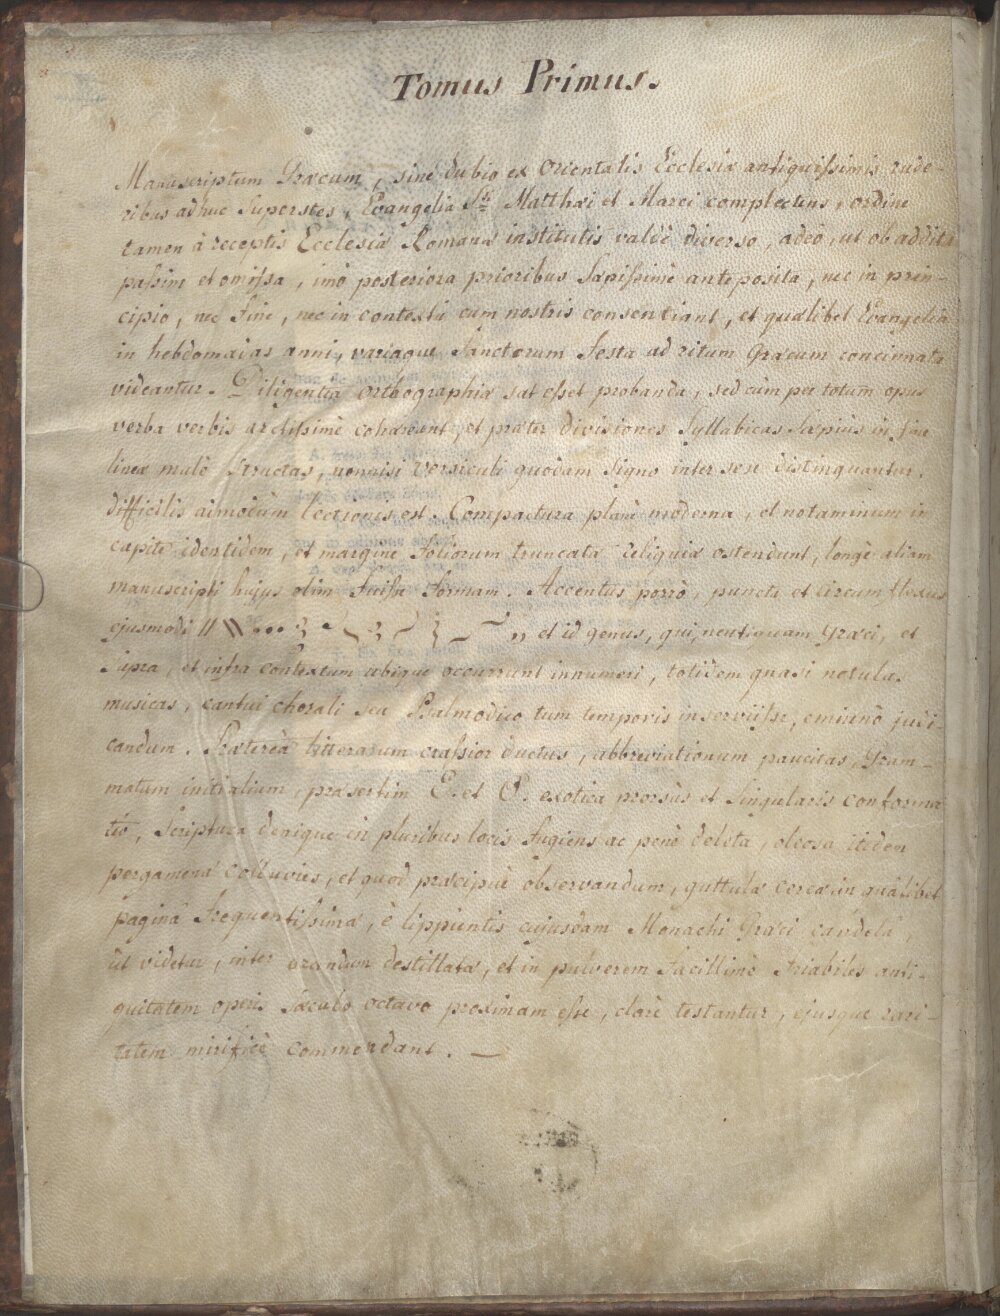 Tomus Primus.
Manuscriptum Græcum, sine dubio ex Orientalis Ecclesiæ antiquissimis rude-
ribus adhuc superstes, Evangelia Sti Matthæi et Marci complectens, ordine
tamen à receptis Ecclesiæ Romanæ institutis valdè diverso, adeò, ut ob addita
passim et omissa, imò posteriora prioribus sæpissimè anteposita, nec in prin-
cipio, nec fine, nec in contextu cum nostris consentiant, et quælibet Evangelia
in hebdomadas anni, variaque Sanctorum festa ad ritum Græcum concinnata
videantur. Diligentia orthographiæ sat esset probanda, sed cùm per totum opus
verba verbis arctissimè cohæreant, et præter divisiones Syllabicas sæpiùs in fine
lineæ malè structas, nonnisi versiculi quodam signo inter sese distinguantur,
difficilis admodùm lectionis est. Compactura planè moderna, et notaminum in
capite identidem, et margine foliorum truncata reliquiæ ostendunt, longè aliam
manuscripti hujus olim fuisse formam. Accentus porrò, puncta et circumflexus
ejusmodi et id genus, qui, neutiquam Græci, et
supra, et infra contextum ubique occurrunt innumeri, totidem quasi notulas
musicas, cantui chorali seu Psalmodico tum temporis inserviisse, eminùs judi-
candum. Præterea litterarum crassior ductus, abbreviationum paucitas, Gram-
matum initialium, præsertim E. et O. exotica prorsùs et singularis conforma-
tio, Scriptura denique in pluribus locis fugiens ac penè deleta, oleosa itidem
pergamenæ colluvies, et quod præcipuè observandum, guttulæ cereæ in quâlibet
paginâ frequentissimæ, è lippientis cujusdam Monachi Græci candelâ,
ut videtur, inter orandum destillatæ, et in pulverem facillimè friabiles anti-
quitatem operis sæculo octavo proximam esse, clarè testantur, ejusque rari-
tatem mirificè commendant. —